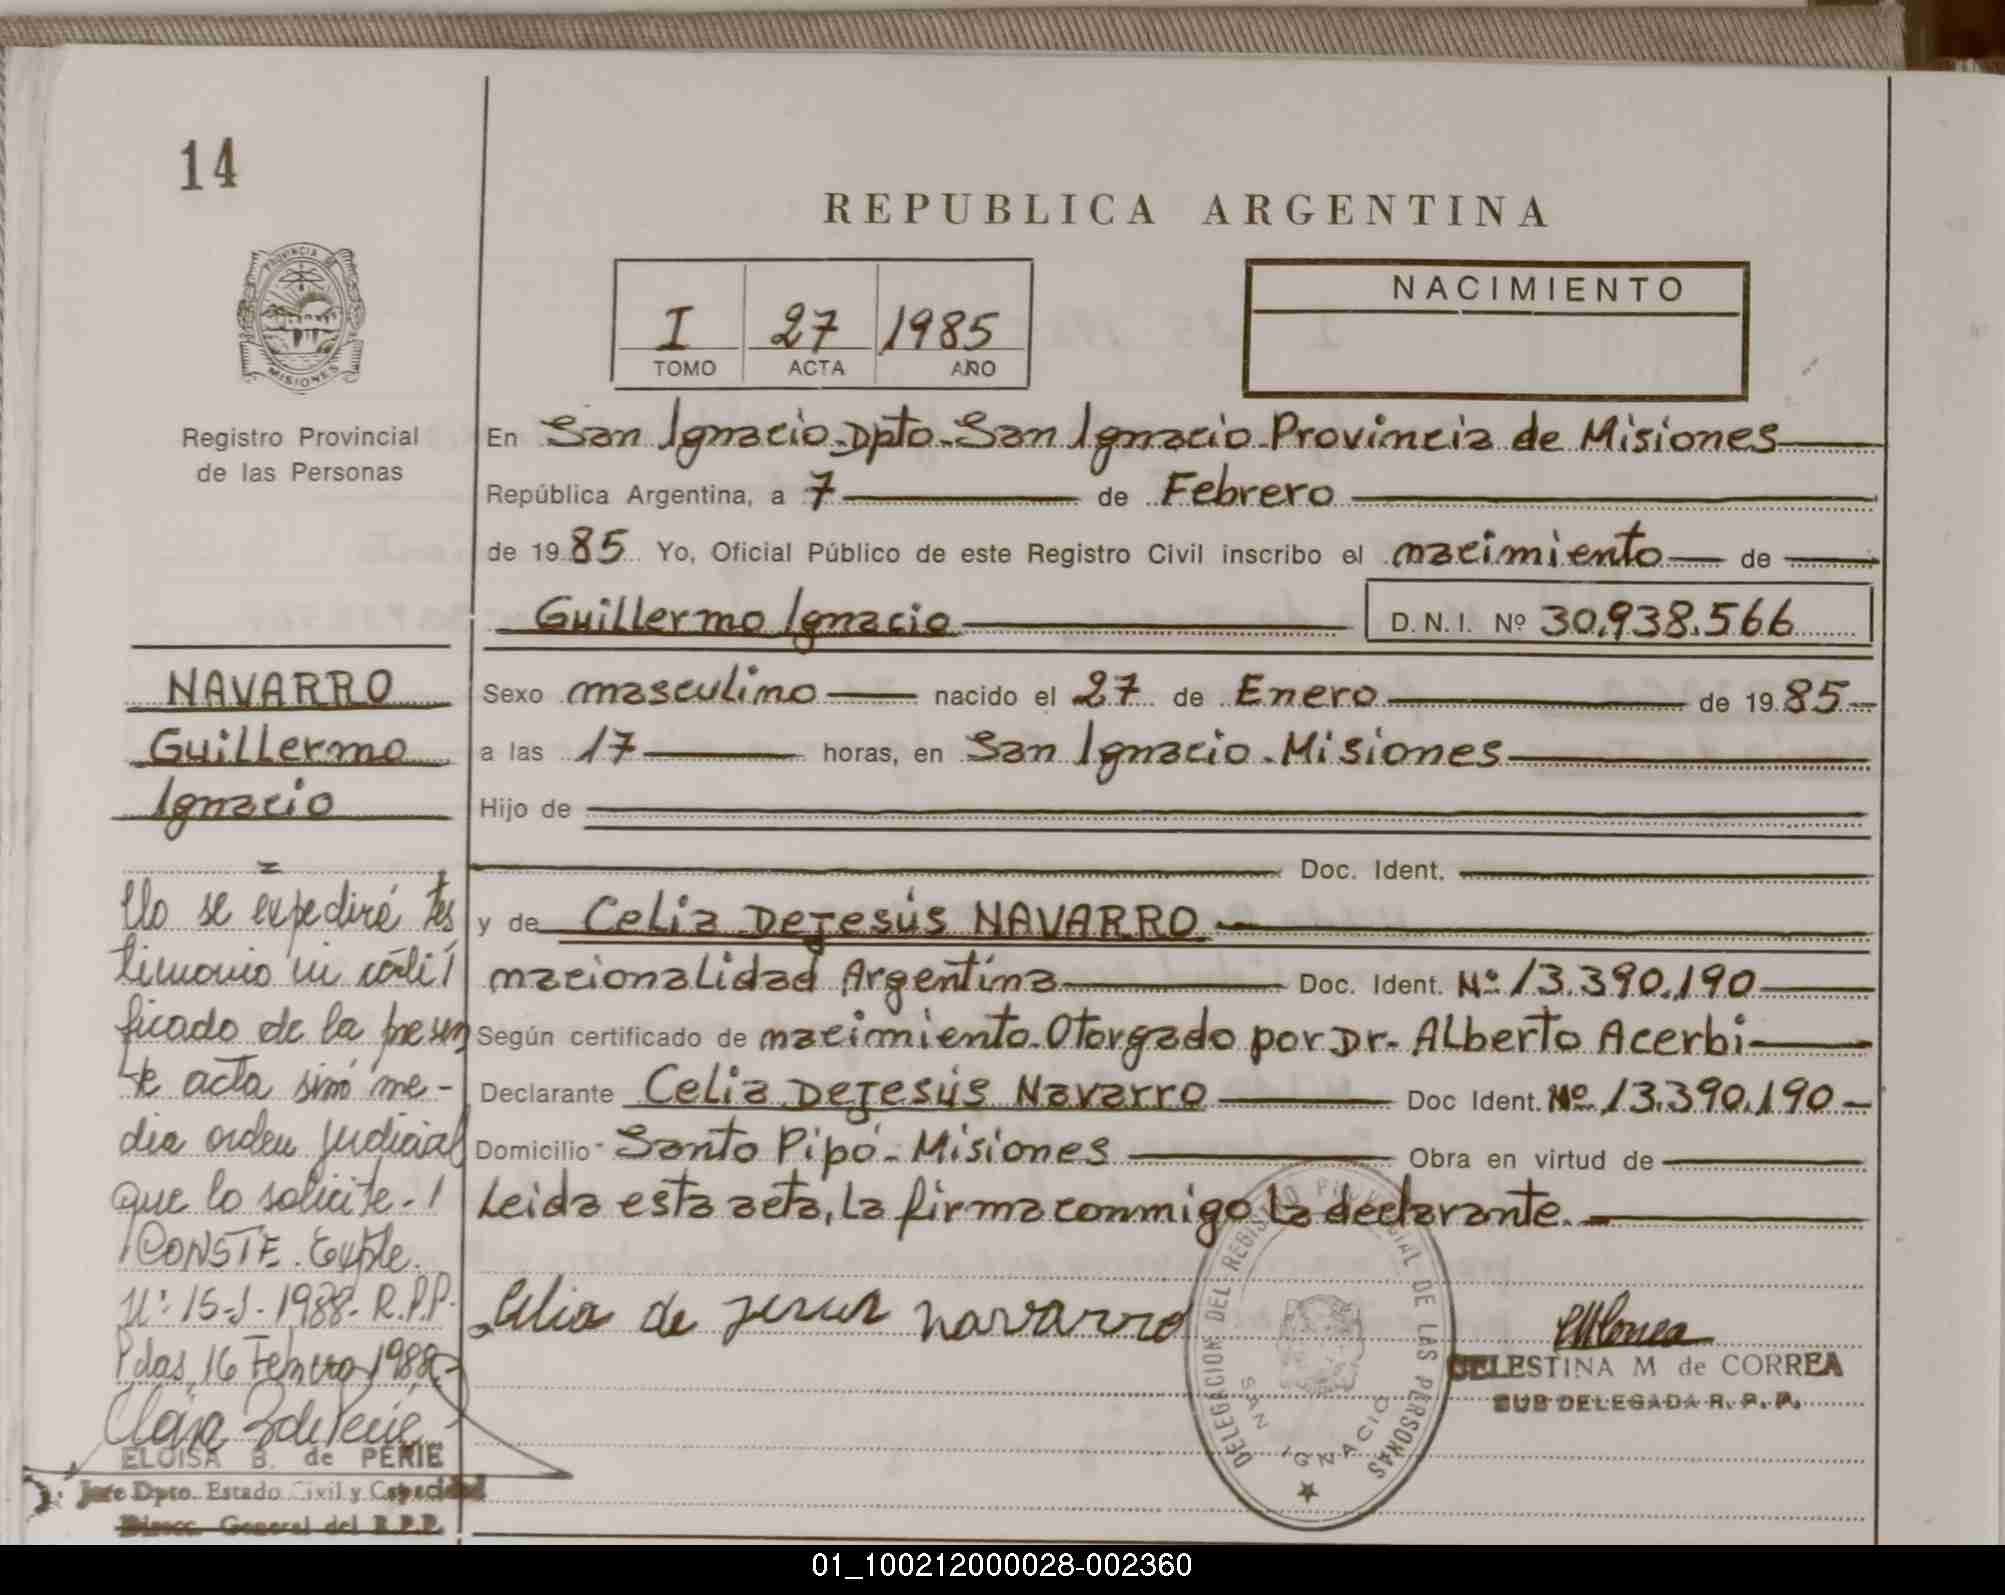 14
REPUBLICA ARGENTINA
PROVINCIA DE
MISIONES
Registro Provincial
de las Personas
I 27 1985
TOMO ACTA AÑO
NACIMIENTO
En San Ignacio Dpto. San Ignacio Provincia de Misiones
República Argentina, a 7 de Febrero
de 1985 Yo, Oficial Público de este Registro Civil inscribo el nacimiento de
Guillermo Ignacio D.N.I. Nº 30.938.566
Sexo masculino nacido el 27 de Enero de 1985
a las 17 horas, en San Ignacio - Misiones
Hijo de
Doc. Ident.
y de Celia DeJesús NAVARRO
nacionalidad Argentina Doc. Ident. Nº 13.390.190
Según certificado de nacimiento Otorgado por Dr. Alberto Acerbi
Declarante Celia DeJesús Navarro Doc Ident. Nº 13.390.190
Domicilio Santo Pipó - Misiones Obra en virtud de
Leida esta acta, la firma conmigo la declarante.
Celia de Jesus Navarro
CELESTINA M de CORREA
SUB DELEGADA R. P. P.
DELEGACION DEL REGISTRO PROVINCIAL DE LAS PERSONAS
SAN IGNACIO
NAVARRO
Guillermo
Ignacio
No se expedirá tes
timonio ni certi
ficado de la presen
te acta sinó me-
dia orden judicial
que lo solicite.-
CONSTE. Expte.
Nº 15-J-1988-R.P.P.
Pdas, 16 Febrero 1988
ELOISA B. de PERIE
Jefe Dpto. Estado Civil y Capacidad
Direcc. General del R.P.P.
01_100212000028-002360